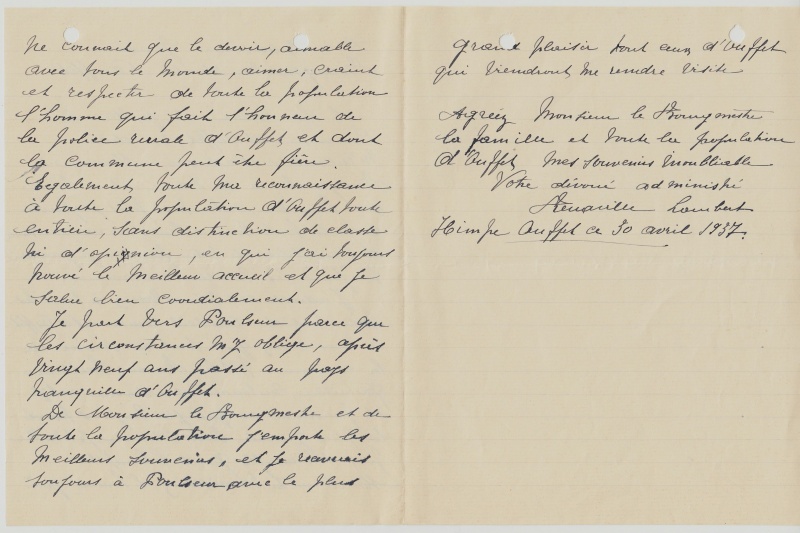 Ne connait que le devoir, aimable
avec tous le monde, aimer, craint
et respecter de toute la population
l'homme qui fait l'honneur de
la police rurale d'Ouffet et dont
la commune peut être fière.
Egalement toute ma reconnaissance
à toute la population d'Ouffet toute
entière, sans distinction de classe
ni d'opignion, en qui j'ai toujours
trouvé le meilleur accueil et que je
salue bien coordialement.
Je part vers Poulseur parce que
les circonstances m'y oblige, après
vingt neuf ans passé au pays
tranquille d'Ouffet.
De Monsieur le Bourgmestre et de
toute la population j'emporte les
meilleurs souvenirs, et je recevrais
toujours à Poulseur avec le plus
grand plaisir tout ceux d'Ouffet
qui viendront me rendre visite
Agréez Monsieur le Bourgmestre
la famille et toute la population
d'Ouffet, mes souvenirs inoubliable
Votre dévoué administré
Lambert
Himpe Ouffet ce 30 avril 1937.